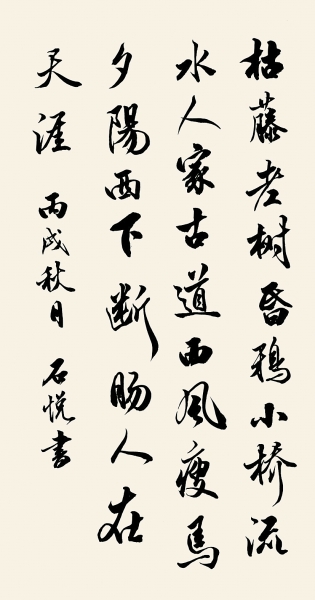 枯藤老树昏鸦小桥流
水人家古道西风瘦馬
夕陽西下断肠人在
天涯 丙戌秋日 石悦書